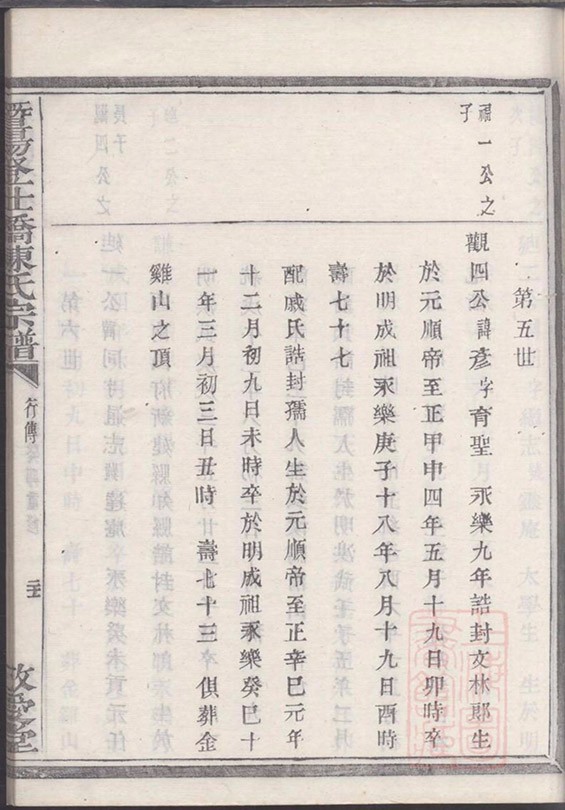 第五世
福一公之
子
觀四公諱彥字育聖 永樂九年誥封文林郎生
於元順帝至正甲申四年五月十九日卯時卒
於明成祖永樂庚子十八年八月十九日酉時
壽七十七
配戚氏誥封孺人生於元順帝至正辛巳元年
十二月初九日未時卒於明成祖永樂癸巳十
一年三月初三日丑時 壽七十三 俱葬金
雞山之頂
暨陽登仕橋陳氏宗譜
行傳
敬愛堂